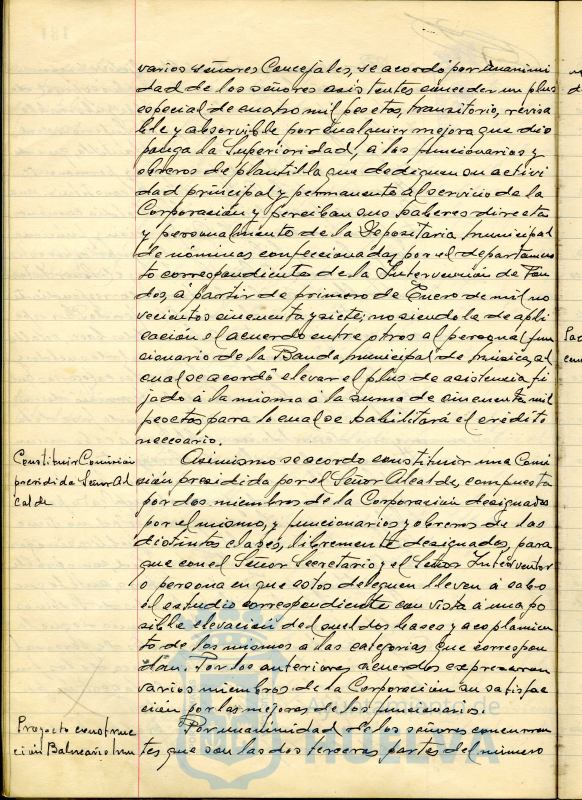 varios señores Concejales, se acordó por unanimi
dad de los señores asistentes conceder un plus
especial de cuatro mil pesetas, transitorio, revisa
ble y absorvible por cualquier mejora que dis
ponga la Superioridad, a los funcionarios y
obreros de plantilla que dediquen su activi
dad principal y permanente al servicio de la
Corporación y perciban sus haberes directa
y personalmente de la Depositaría municipal
de nóminas confeccionadas por el departamen
to correspondiente de la Intervención de Fon
dos, á partir de primero de Enero de mil no
vecientos cincuenta y siete; no siendo la de apli
cación el acuerdo entre otros al personal fun
cionario de la Banda municipal de música, al
cual se acordó elevar el plus de asistencia, fi
jado á la misma á la suma de cincuenta mil
pesetas para lo cual se habilitará el crédito
necesario.
Constituir Comisión
presidida Señor Al
calde
Asimismo se acordo constituir una Comi
sión presidida por el Señor Alcalde, compuesta
por dos miembros de la Corporación designados
por el mismo, y funcionarios y obreros de las
distintas clases, libremente designados, para
que con el Señor Secretario y el Señor Interventor
o persona en que estos deleguen lleven á cabo
el estudio correspondiente con vista á una po
sible elevación del sueldos bases y acoplamien
to de los mismos a las categorías que correspon
dan. Por los anteriores acuerdos expresaron
varios miembros de la Corporación su satisfac
ción por las mejoras de los funcionarios.
Proyecto construc
ción Balneario
Por unanimidad de los señores concurren
tes que son las dos terceras partes del número
Ayuntamiento de
HUELVA